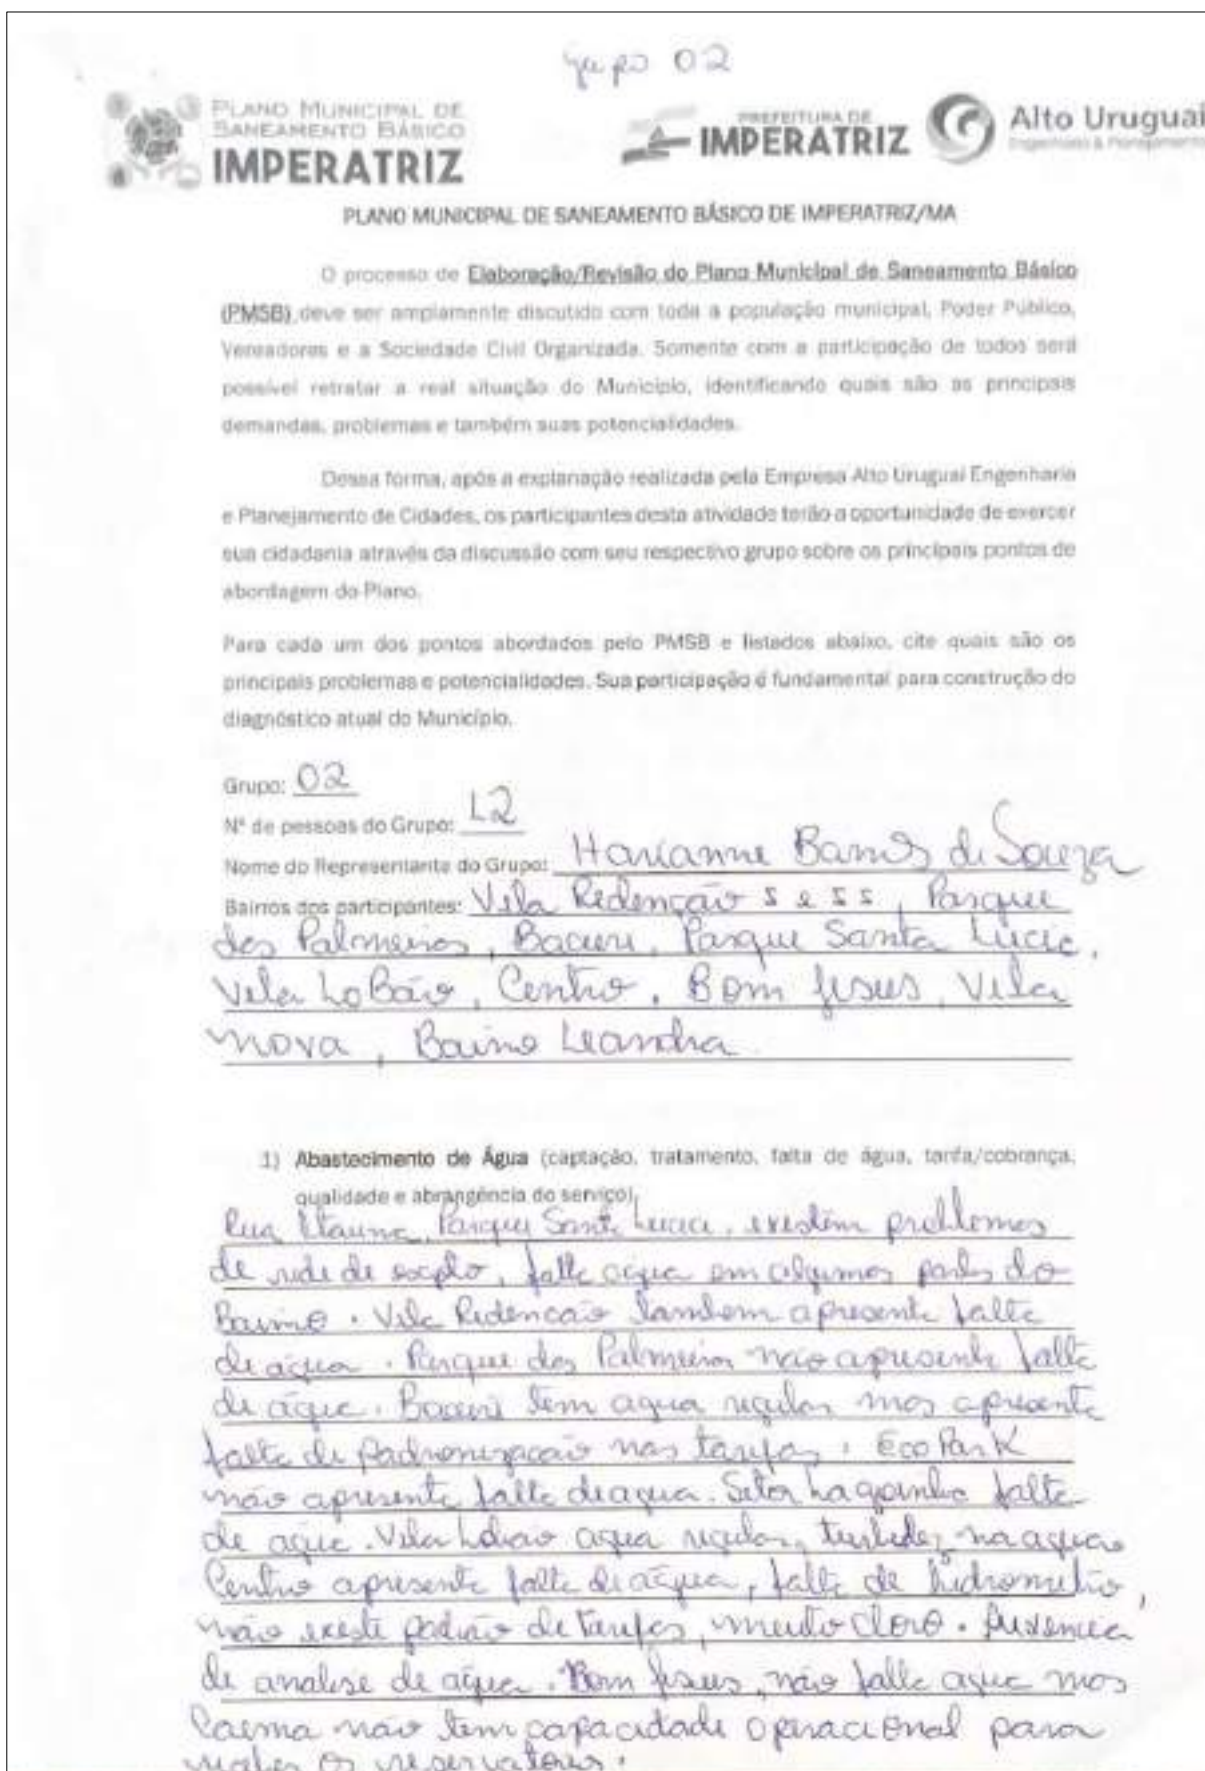 Grupo 02
PLANO MUNICIPAL DE
SANEAMENTO BÁSICO
IMPERATRIZ
PREFEITURA DE
IMPERATRIZ
Alto Uruguai
Engenharia & Planejamento
PLANO MUNICIPAL DE SANEAMENTO BÁSICO DE IMPERATRIZ/MA
O processo de Elaboração/Revisão do Plano Municipal de Saneamento Básico
(PMSB) deve ser amplamente discutido com toda a população municipal, Poder Público,
Vereadores e a Sociedade Civil Organizada. Somente com a participação de todos será
possível retratar a real situação do Município, identificando quais são as principais
demandas, problemas e também suas potencialidades.
Dessa forma, após a explanação realizada pela Empresa Alto Uruguai Engenharia
e Planejamento de Cidades, os participantes desta atividade terão a oportunidade de exercer
sua cidadania através da discussão com seu respectivo grupo sobre os principais pontos de
abordagem do Plano.
Para cada um dos pontos abordados pelo PMSB e listados abaixo, cite quais são os
principais problemas e potencialidades. Sua participação é fundamental para construção do
diagnóstico atual do Município.
Grupo: 02
Nº de pessoas do Grupo: 12
Nome do Representante do Grupo: Harianne Barros de Souza
Bairros dos participantes: Vila Redenção I e II, Parque
das Palmeiras, Bacuri, Parque Santa Lucia,
Vila LoBão, Centro, Bom Jesus, Vila
nova, Bairro Leandra
1) Abastecimento de Água (captação, tratamento, falta de água, tarifa/cobrança,
qualidade e abrangência do serviço)
Rua Itauna, Parque Santa Lucia, existem problemas
de rede de esgoto, falta agua em algumas partes do
Bairro. Vila Redencão tambem apresenta falta
de água. Parque das Palmeiras não apresenta falta
de água. Bacuri tem agua regular mas apresenta
falta de padronização nas tarifas. Eco Park
não apresenta falta de agua. Setor Lagoinha falta
de água. Vila Lobão agua regular, turbidez na agua
Centro apresenta falta de água, falta de hidrometro,
não existe padrão de tarifas, muito cloro. Ausencia
de analise de água. Bom Jesus, não falta agua mas
Caema não tem capacidade operacional para
os reservatorios.